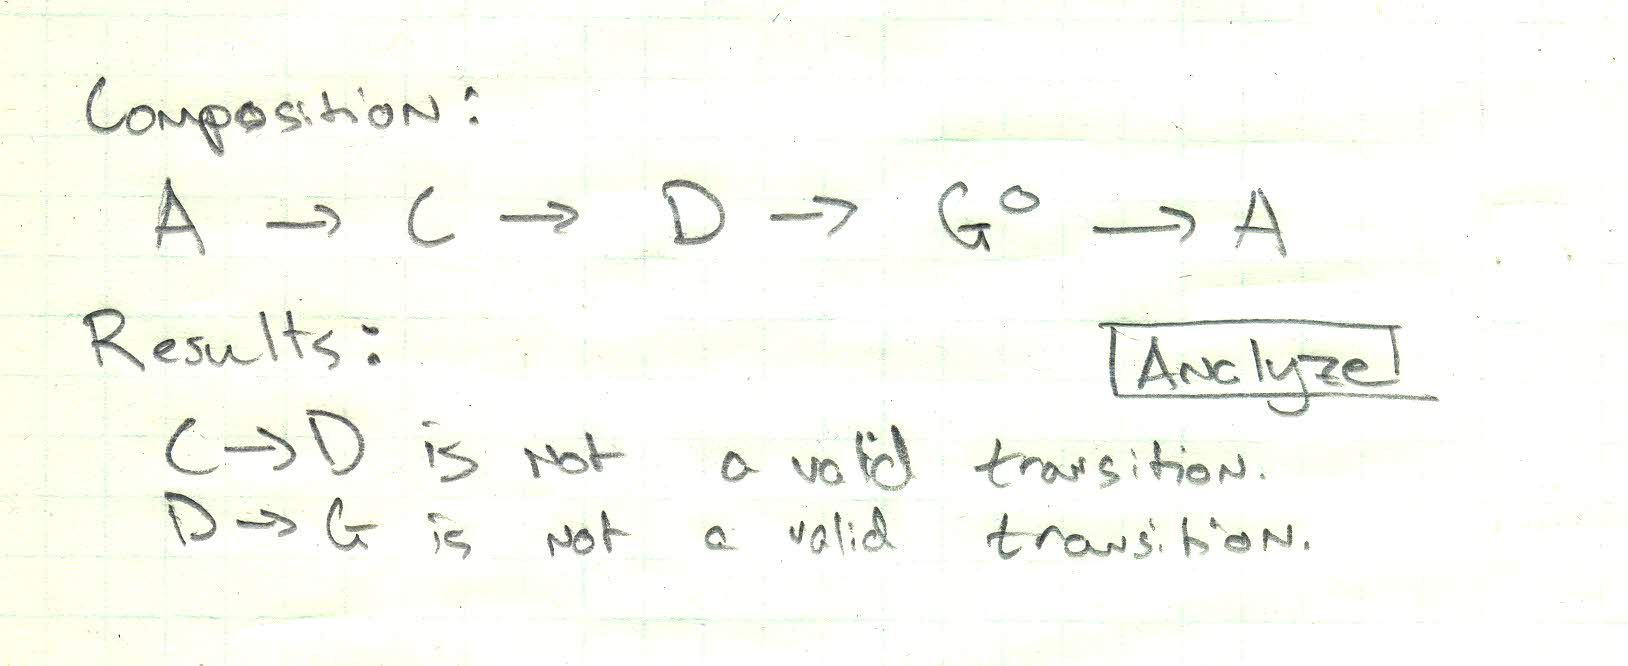 Composition:
A → C → D → G° → A
Results:
Analyze
C → D is not a valid transition.
D → G is not a valid transition.